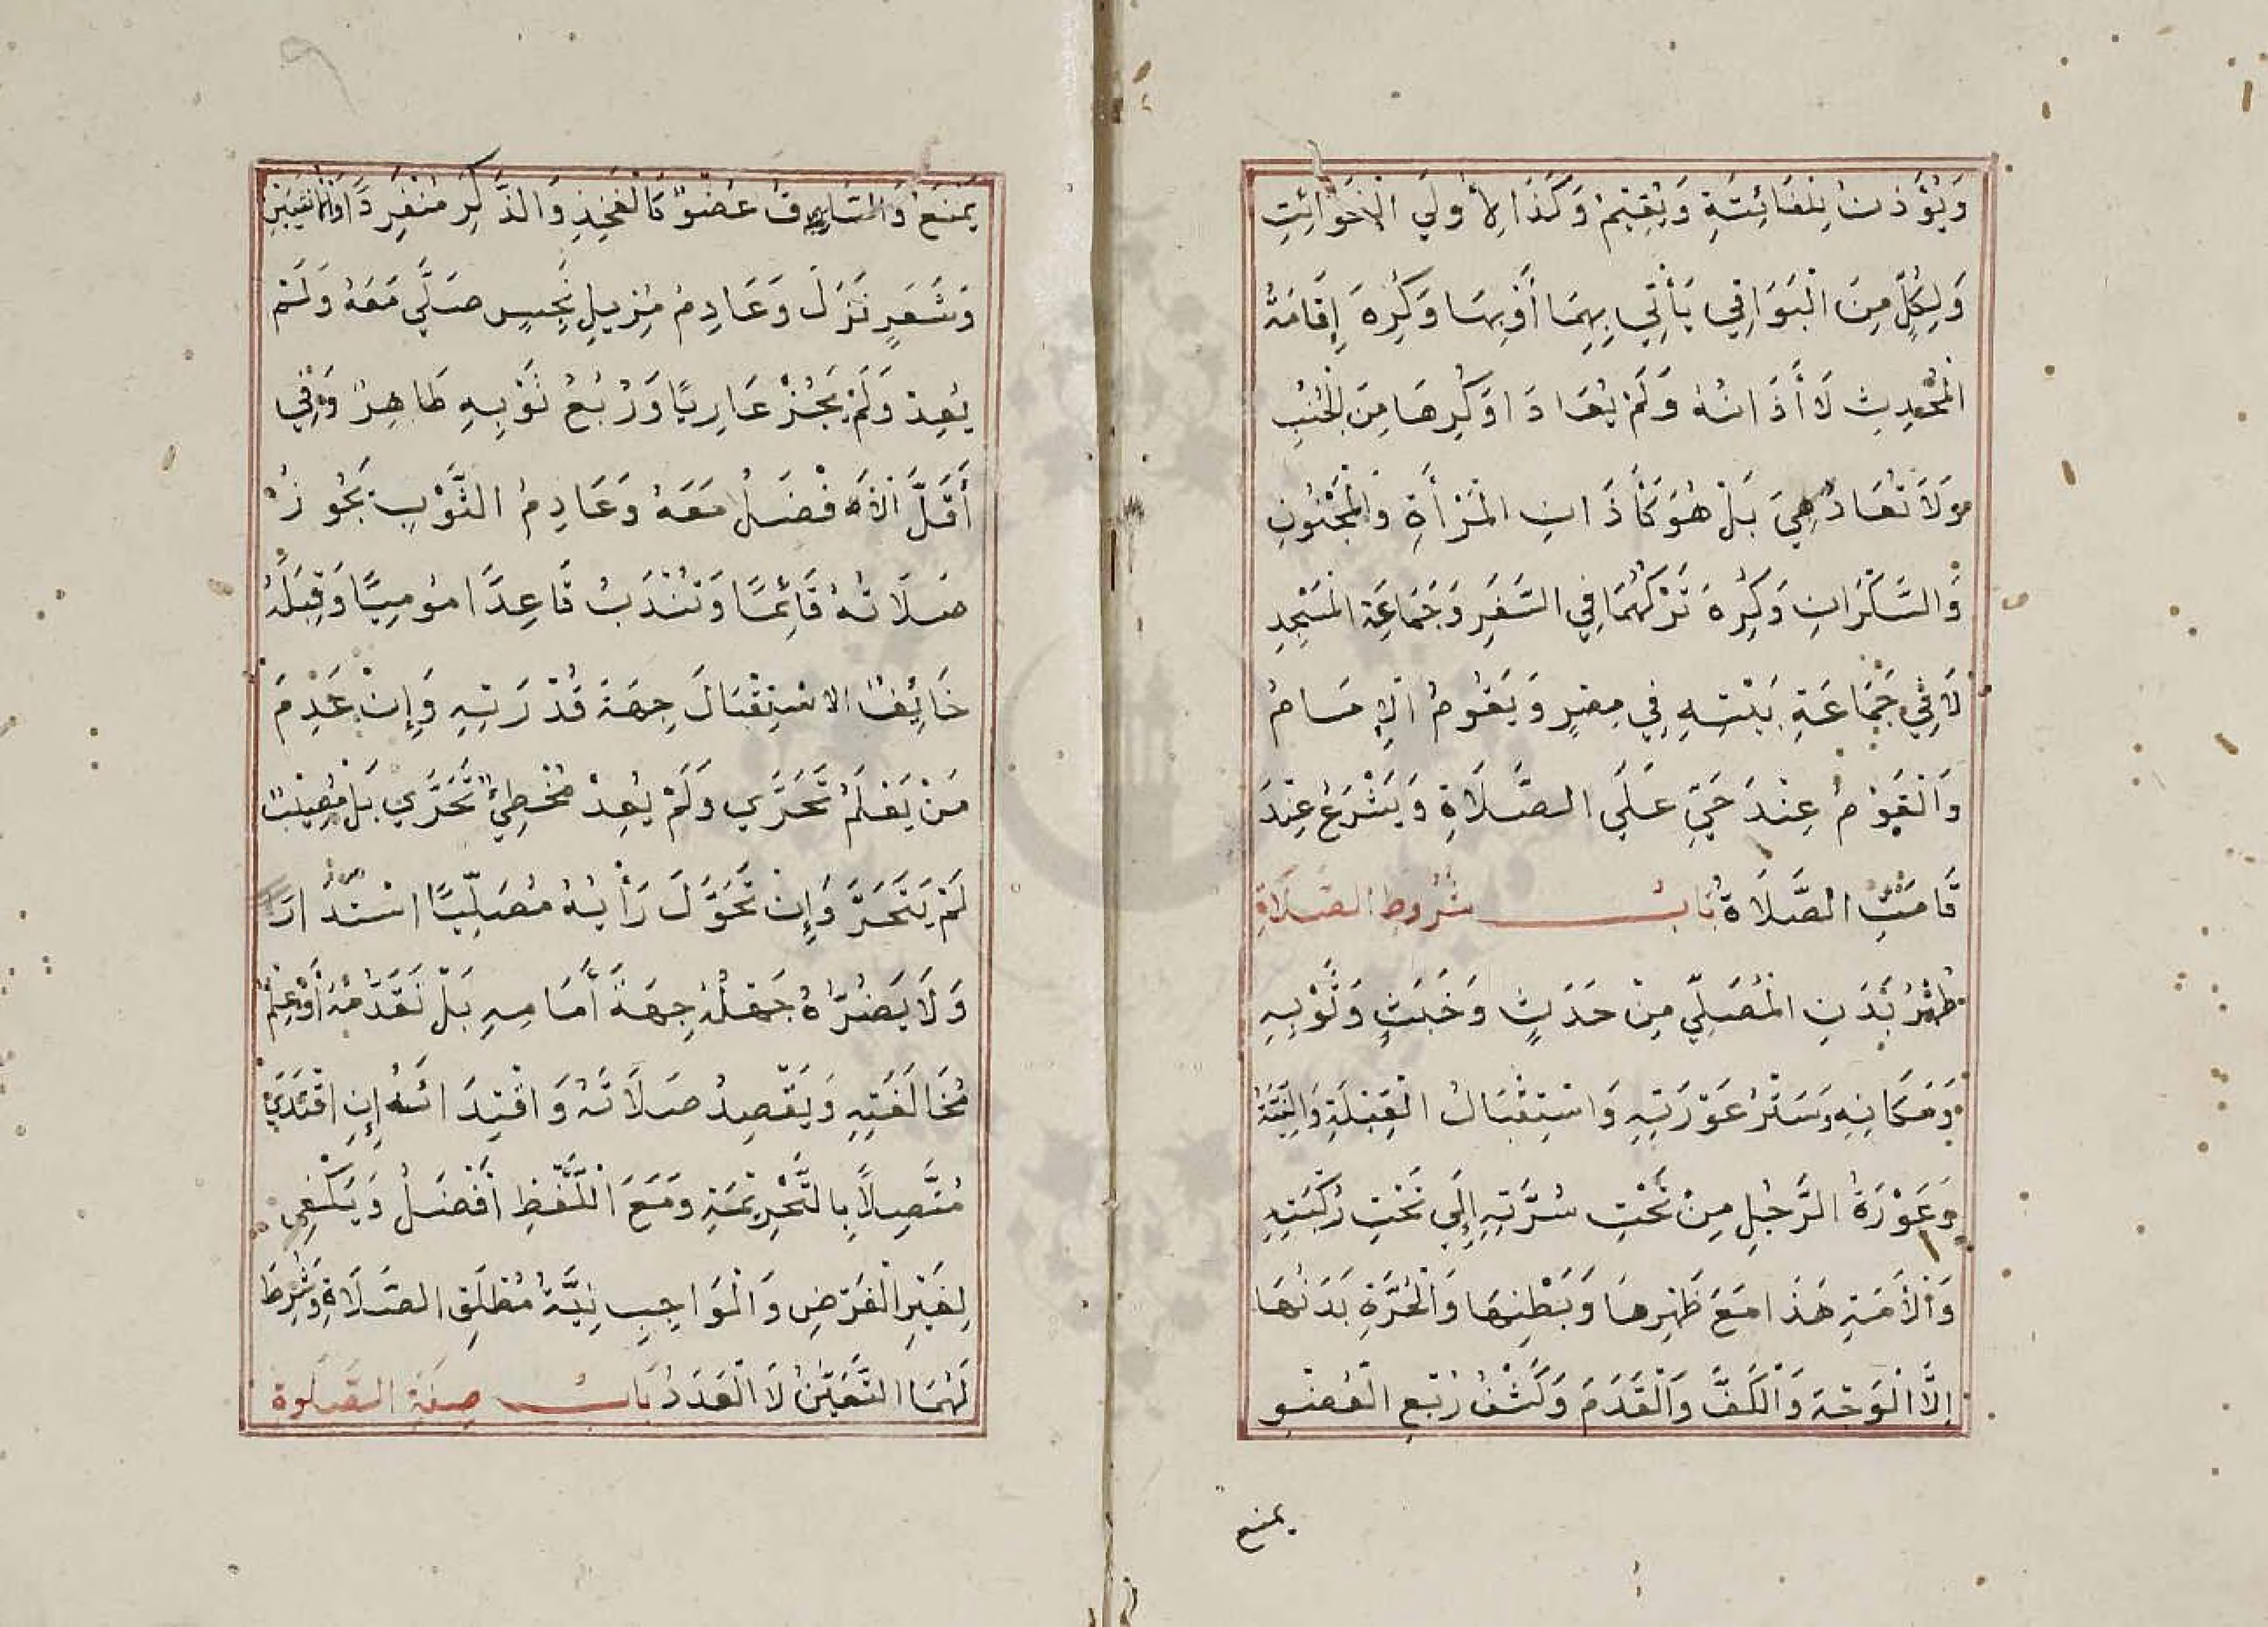 وَيُؤَذِّنُ لِلْفَائِتَةِ وَيُقِيْمُ وَكَذَا لِأُولَي الْفَوَائِتِ
وَلِكُلٍّ مِنَ الْبَوَاقِي يَأْتِي بِهِمَا أَوْ بِهَا وَكُرِهَ إِقَامَةُ
الْمُحْدِثِ لَا أَذَانُهُ وَلَمْ يُعَادَا وَكُرِهَا مِنَ الْجُنُبِ
وَلَا تُعَادُ هِيَ بَلْ هُوَ كَأَذَانِ الْمَرْأَةِ وَالْمَجْنُونِ
وَالسَّكْرَانِ وَكُرِهَ تَرْكُهُمَا فِي السَّفَرِ وَجَمَاعَةِ الْمَسْجِدِ
لَا فِي جَمَاعَةِ بَيْتِهِ فِي مِصْرٍ وَيَقُومُ الْإِمَامُ
وَالْقَوْمُ عِنْدَ حَيَّ عَلَي الصَّلَاةِ وَيَشْرَعُ عِنْدَ
قَامَتِ الصَّلَاةُ بَابُ شُرُوطِ الصَّلَاةِ
طُهْرُ بَدَنِ الْمُصَلِّي مِنْ حَدَثٍ وَخَبَثٍ وَثَوْبِهِ
وَمَكَانِهِ وَسَتْرُ عَوْرَتِهِ وَاسْتِقْبَالُ الْقِبْلَةِ وَالنِّيَّةُ
وَعَوْرَةُ الرَّجُلِ مِنْ تَحْتِ سُرَّتِهِ إِلَي تَحْتِ رُكْبَتِهِ
وَالْأَمَةِ هَذَا مَعَ ظَهْرِهَا وَبَطْنِهَا وَالْحُرَّةِ بَدَنُهَا
إِلَّا الْوَجْهَ وَالْكَفَّ وَالْقَدَمَ وَكَشْفُ رُبْعِ الْعُضْوِ
يمنع
يَمْنَعُ وَالسَّاقُ عُضْوٌ كَالْفَخِذِ وَالذَّكَرِ مُنْفَرِدًا وَالْأُنْثَيَيْنِ
وَشَعَرٍ نَزَلَ وَعَادِمُ مُزِيلِ نَجِسٍ صَلَّي مَعَهُ وَلَمْ
يُعِدْ وَلَمْ يَجُزْ عَارِيًا وَرُبْعُ ثَوْبِهِ طَاهِرٌ وَفِي
أَقَلَّ الْأَفْضَلُ مَعَهُ وَعَادِمُ الثَّوْبِ يَجُوزُ
صَلَاتُهُ قَائِمًا وَتُنْدَبُ قَاعِدًا مُومِيًا وَقِبْلَةُ
خَائِفِ الاسْتِقْبَالَ جِهَةُ قُدْرَتِهِ وَإِنْ عَدِمَ
مَنْ يَعْلَمُ تَحَرَّي وَلَمْ يُعِدْ مُخْطِئٌ تَحَرَّي بَلْ مُصِيْبٌ
لَمْ يَتَحَرَّ وَإِنْ تَحَوَّلَ رَأْيُهُ مُصَلِّيًا اسْتَدَارَ
وَلَا يَضُرُّهُ جَهْلُهُ جِهَةَ أَمَامِهِ بَلْ تَقَدُّمُهُ أَوْ عِلْمُ
مُخَالَفَتِهِ وَيَقْصِدُ صَلَاتَهُ وَاقْتِدَائَهُ إِنِ اقْتَدَي
مُتَّصِلًا بِالتَّحْرِيْمَةِ وَمَعَ اللَّفْظِ أَفْضَلُ وَيَكْفِي
لِغَيْرِ الْفَرْضِ وَالْوَاجِبِ نِيَّةُ مُطْلَقِ الصَّلَاةِ وَشُرِطَ
لَهُمَا التَّعْيِيْنُ لَا الْعَدَدُ بَابُ صِفَةِ الصَّلَوةِ